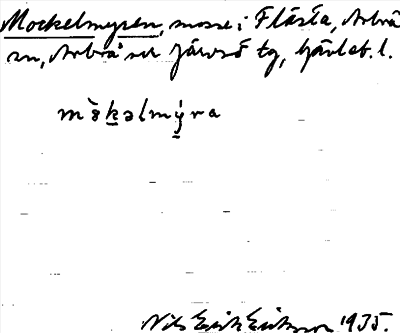 Mockelmyren, mosse i Flästa, Arbrå
sn, Arbrå och Järvsö tg, Gävleb. l.
mòkəlmýra
Nils Erik Eriksson 1935.